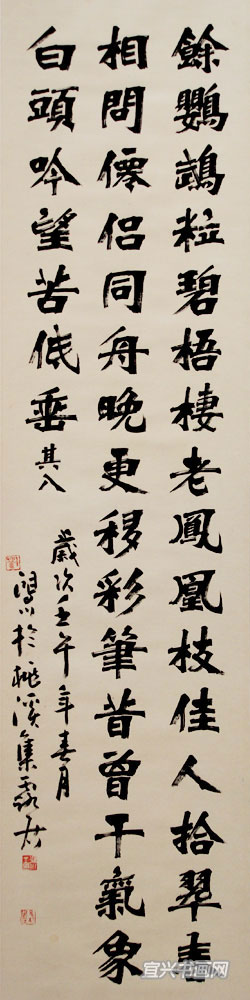 餘鸚鵡粒碧梧棲老鳳凰枝佳人拾翠春
相問僊侶同舟晚更移彩筆昔曾干氣象
白頭吟望苦低垂其八
歲次壬午年春月
於桃溪集
宜兴书画网